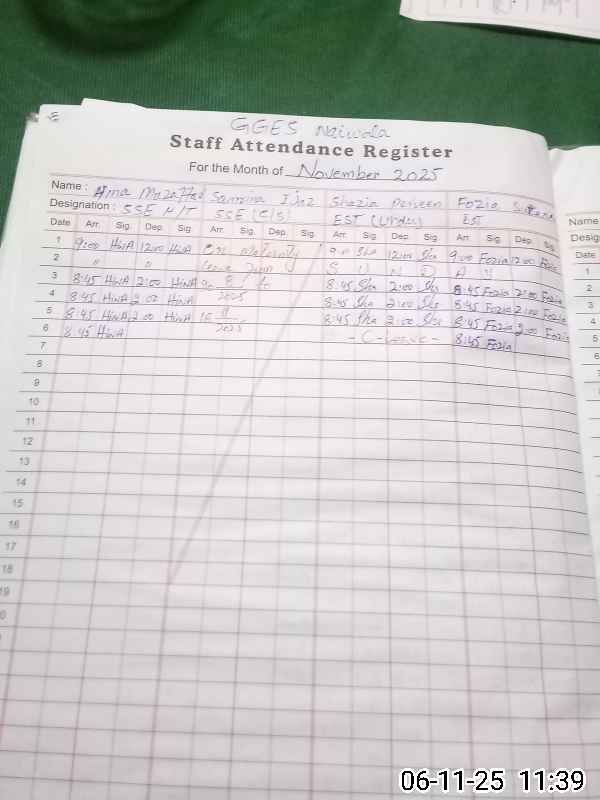 GGES Naiwala
Staff Attendance Register
For the Month of November 2025
Name : Hina Muzaffar Samrina Ijaz Shazia Perveen Fozia Sultana
Designation : SSE M/T SSE (C/S) EST (Urdu) EST
Date Arr. Sig. Dep. Sig. Arr. Sig. Dep. Sig. Arr. Sig. Dep. Sig. Arr. Sig. Dep. Sig.
1 9:00 HinA 12:00 HinA On Maternity 9:00 Sha 12:00 Sha 9:00 Fozia 12:00 Fozia
2 " " Leave from S U N D A Y
3 8:45 HinA 2:00 HinA 8 2025 to 8:45 Sha 2:00 Sha 8:45 Fozia 2:00 Fozia
4 8:45 HinA 2:00 HinA 8:45 Sha 2:00 Sha 8:45 Fozia 2:00 Fozia
5 8:45 HinA 2:00 HinA 11 2025 8:45 Sha 2:00 Sha 8:45 Fozia 2:00 Fozia
6 8:45 HinA - C-Leave - 8:45 Fozia
7
8
9
10
11
12
13
14
15
16
17
18
19
Name
Desig
Date
1
2
3
4
5
6
06-11-25 11:39